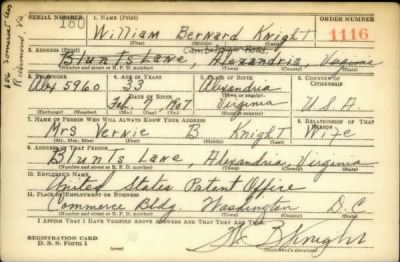 SERIAL NUMBER 1. NAME (Print) ORDER NUMBER
180 William Bernard Knight 1116
(First) (Middle) (Last)
Cambridge Road,
2. ADDRESS (Print)
Blunts Lane, Alexandria, Virginia
(Number and street or R. F. D. number) (Town) (County) (State)
3. TELEPHONE 4. AGE IN YEARS 5. PLACE OF BIRTH 6. COUNTRY OF CITIZENSHIP
Alex 5960 33 Alexandria
DATE OF BIRTH (Town or county)
Feb. 7, 1907 Virginia U.S.A.
(Exchange) (Number) (Mo.) (Day) (Yr.) (State or country)
7. NAME OF PERSON WHO WILL ALWAYS KNOW YOUR ADDRESS 8. RELATIONSHIP OF THAT PERSON
Mrs Vernie B Knight Wife
(Mr., Mrs., Miss) (First) (Middle) (Last)
9. ADDRESS OF THAT PERSON
Blunts Lane, Alexandria, Virginia
(Number and street or R. F. D. number) (Town) (County) (State)
10. EMPLOYER'S NAME
United States Patent Office
11. PLACE OF EMPLOYMENT OR BUSINESS
Commerce Bldg Washington D.C
(Number and street or R. F. D. number) (Town) (County) (State)
I AFFIRM THAT I HAVE VERIFIED ABOVE ANSWERS AND THAT THEY ARE TRUE.
REGISTRATION CARD
D. S. S. FORM 1
Wm B Knight
(Registrant's signature)